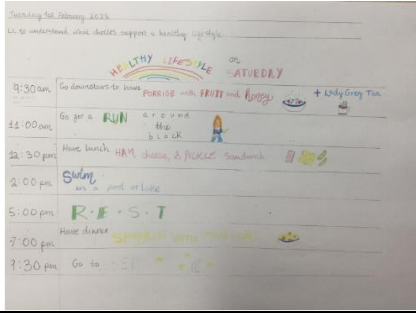 Tuesday 1st February 2022
LI: to understand what choices support a healthy lifestyle
HEALTHY LIFESTYLE on SATURDAY
9:30am Go downstairs to have PORRIGE with FRUIT and Honey + Lady Grey Tea
11:00am Go for a RUN around
the
block
12:30pm Have lunch HAM, cheese, & PICKLE Sandwich
2:00 pm Swim
in a pool or lake
5:00 pm R.E.S.T
7:00 pm Have dinner SPAGHETTI WITH
9:30 pm Go to